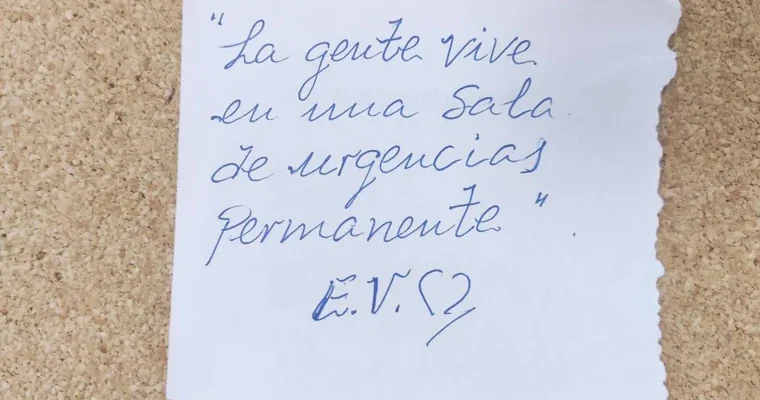 "La gente vive
en una Sala
de urgencias
permanente".
E.V.